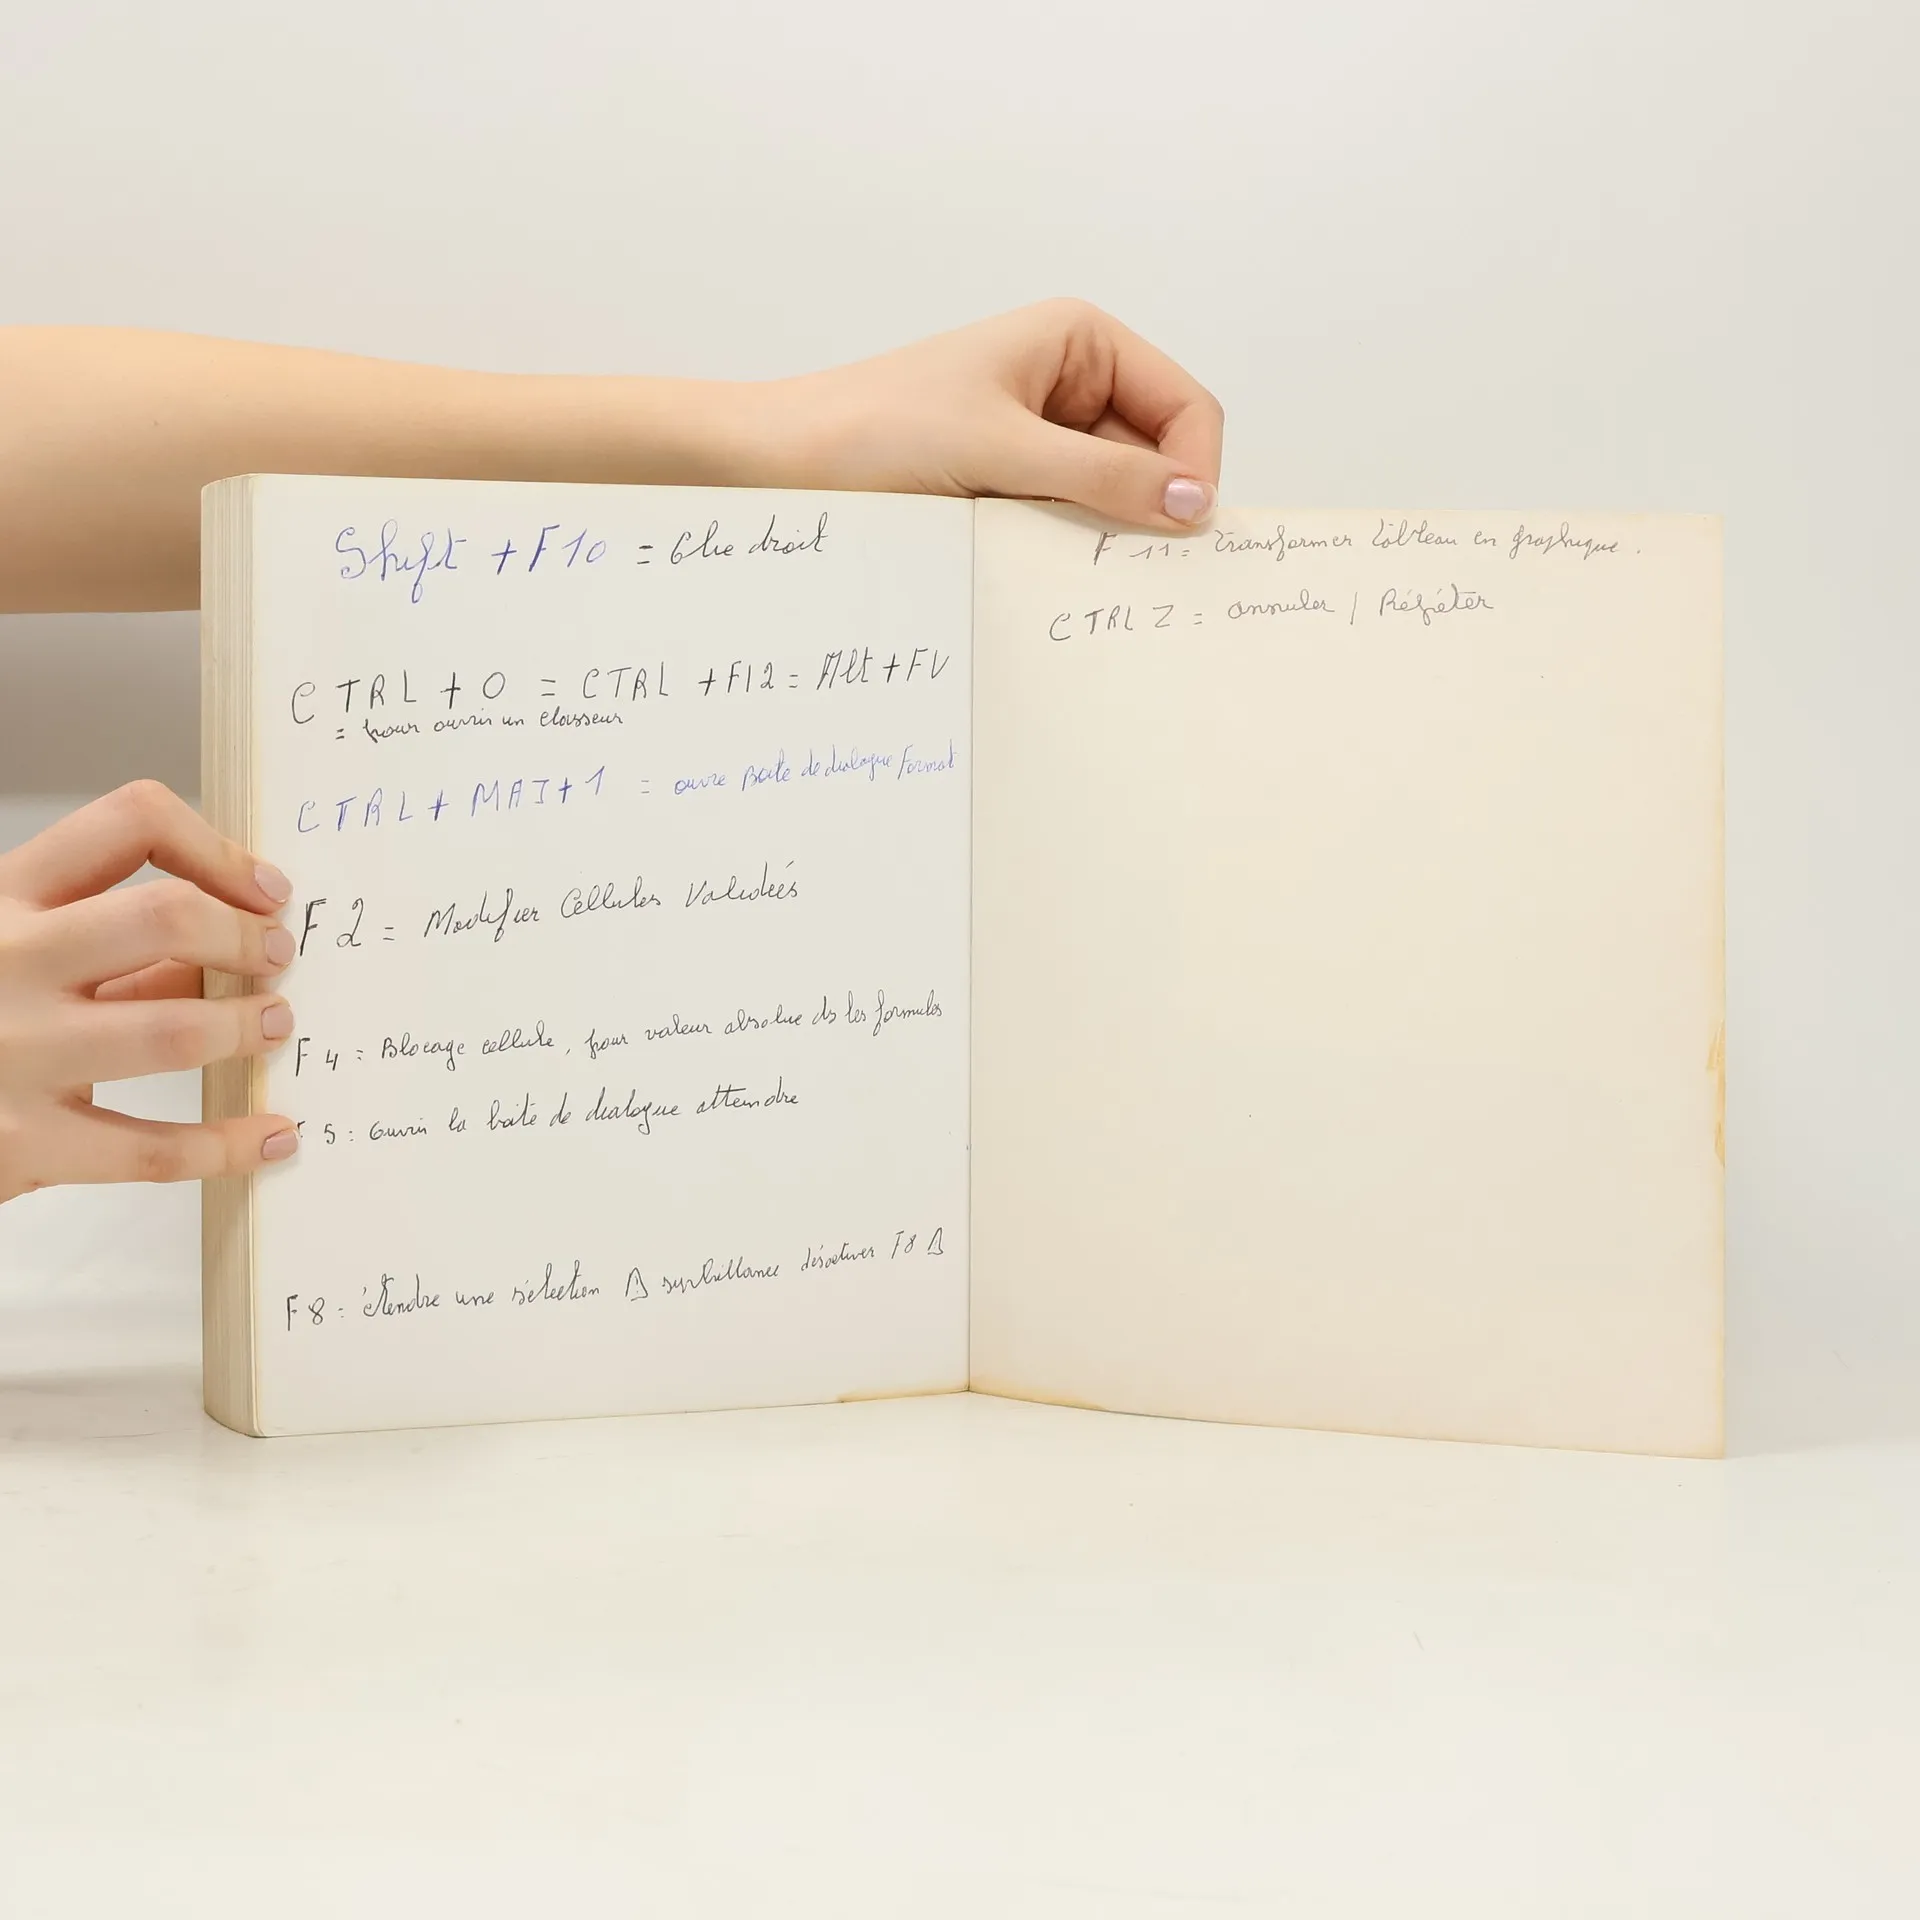 Shift + F10 = Clic droit
CTRL + O = CTRL + F12 = Alt + FV
= pour ouvrir un classeur
CTRL + MAJ + 1 = ouvre Boite de dialogue Format
F2 = Modifier Cellules Validées
F4 = Blocage cellule, pour valeur absolue ds les formules
5 : Ouvrir la boite de dialogue atteindre
F8 : étendre une sélection ⚠ désactiver F8 ⚠
F 11 = Transformer tableau en graphique.
CTRL Z = annuler / Répéter